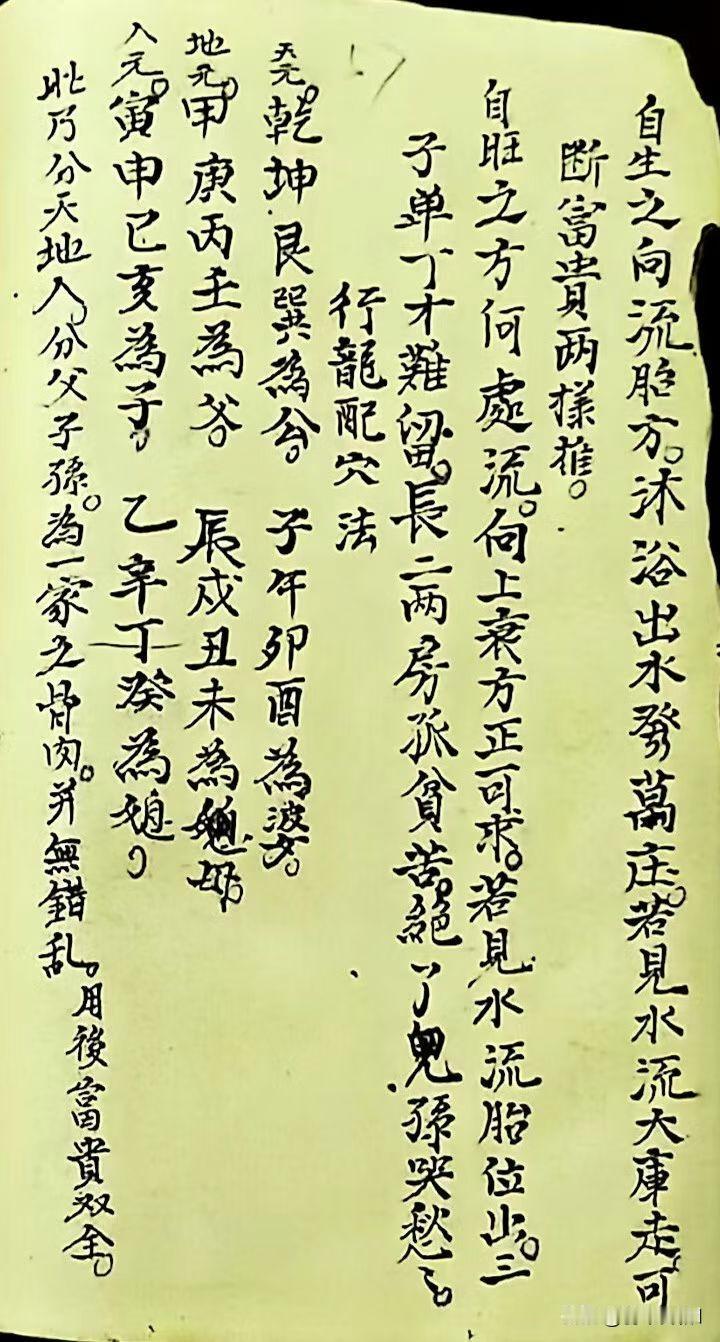 自生之向流胎方。沐浴出水發萬庄。若見水流大庫走。可
断富貴两樣推。
自旺之方何處流。向上衰方正可求。若見水流胎位出。三
子单丁才難留。長二两房孤貧苦。絕了児孫哭愁々。
行龍配穴法
天元。乾坤艮巽為公。子午卯酉為婆。
地元。甲庚丙壬為爷。辰戍丑未為母。
人元。寅申巳亥為子。乙辛丁癸為媳。
此乃分天地人。分父子孫。為一家之骨肉。并無錯乱。用後富貴双全。